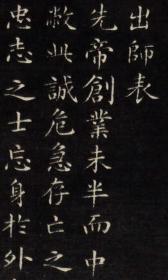 出師表
先帝創業未半而中
敝此誠危急存亡之
忠志之士忘身於外